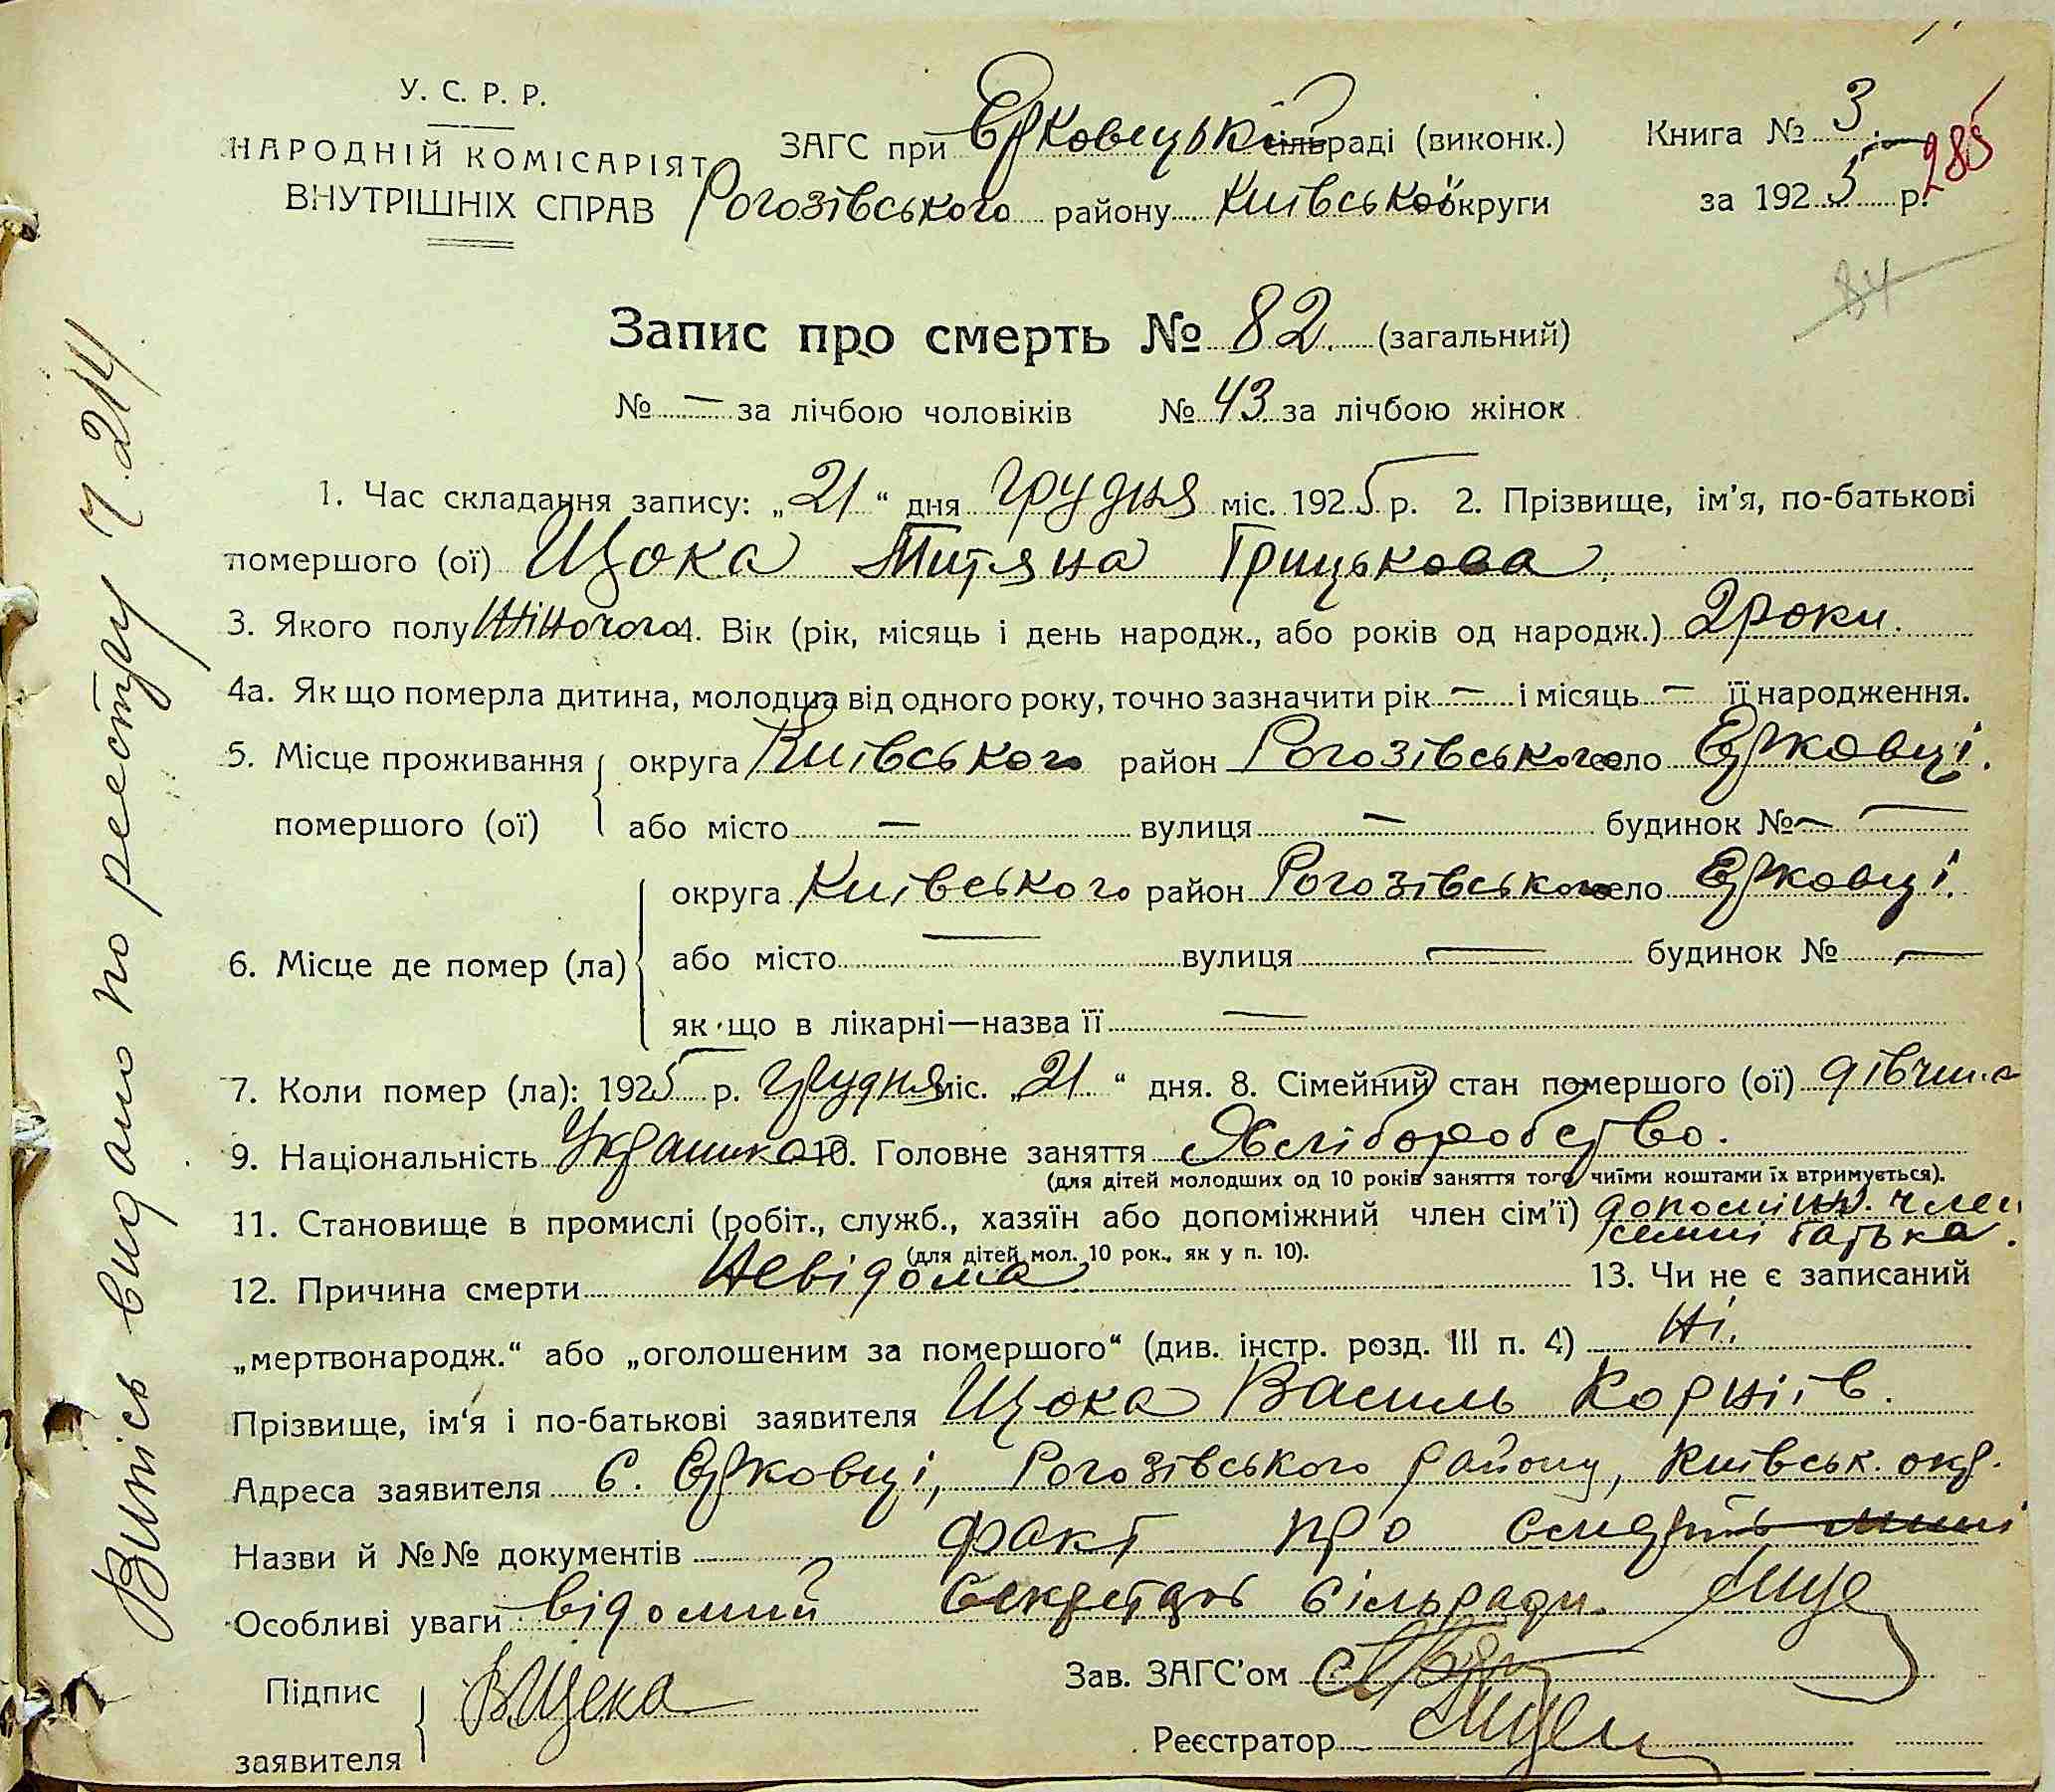 У. С. Р. Р.
НАРОДНІЙ КОМІСАРІЯТ
ВНУТРІШНІХ СПРАВ
ЗАГС при Єрковецькій сільраді (виконк.)
Рогозівського району Київської округи
Книга № 3.
за 1925 р.
285
84
Запис про смерть № 82. (загальний)
№ — за лічбою чоловіків № 43 за лічбою жінок
1. Час складання запису: „21“ дня Грудня міс. 1925 р. 2. Прізвище, ім'я, по-батькові
помершого (ої) Щока Титяна Грицькова.
3. Якого полу Жіночого 4. Вік (рік, місяць і день народж., або років од народж.) 2 роки.
4а. Як що померла дитина, молодша від одного року, точно зазначити рік — і місяць — її народження.
5. Місце проживання помершого (ої) округа Київського район Рогозівського село Єрковці.
або місто — вулиця — будинок № —
6. Місце де помер (ла) округа Київського район Рогозівського село Єрковці.
або місто — вулиця — будинок № —
як-що в лікарні—назва її —
7. Коли помер (ла): 1925 р. Грудня міс. „21“ дня. 8. Сімейний стан помершого (ої) дівчина
9. Національність Українка 10. Головне заняття Хліборобство.
(для дітей молодших од 10 років заняття того, чиїми коштами їх втримується).
11. Становище в промислі (робіт., служб., хазяїн або допоміжний член сім'ї) допоміжн. член
семьї батька.
(для дітей мол. 10 рок., як у п. 10).
12. Причина смерти Невідома 13. Чи не є записаний
„мертвонародж.“ або „оголошеним за помершого“ (див. інстр. розд. III п. 4) Ні.
Прізвище, ім'я і по-батькові заявителя Щока Василь Корніїв.
Адреса заявителя с. Єрковці, Рогозівського району, Київськ. окр.
Назви й №№ документів факт про смерть мині
Особливі уваги відомий Секретарь Сільради.
Підпис заявителя В. Щека
Зав. ЗАГС'ом
Реєстратор
Витісь видано по реестру Ч. 214